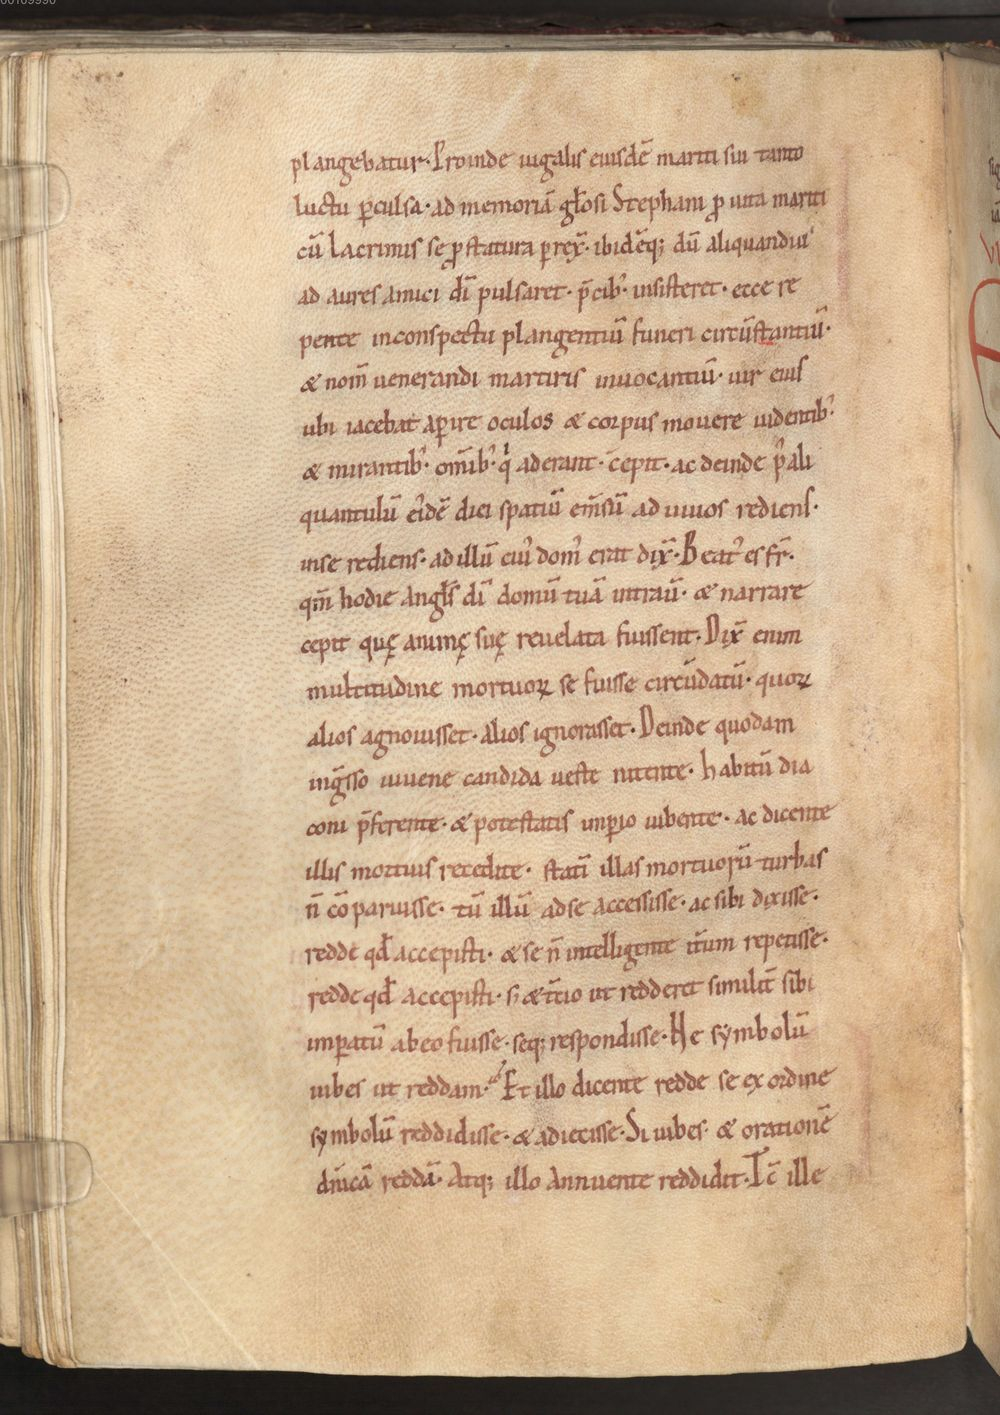 plangebatur· Proinde iugalis eiusdē mariti sui tanto
luctu ꝑculsa· ad memoriā gł̄osi Stephani ꝓ uita mariti
cū lacrimis se ꝓstratura ꝑrex̄· ibidēq; dū aliquandiu
ad aures amici dī pulsaret· p̄cib᾽ insisteret· ecce re
pente inconspectu plangentiū funeri circūstantiū·
& nom̄ venerandi martiris inuocantiū· uir eius
ubi iacebat aperire oculos & corpus mouere uidentib᾽
& mirantib᾽ om̄ib᾽ q̇ aderant· c̄epit· ac deinde p᾽ ali
quantulū ei᾽dē diei spatiū em̄sū ad uiuos rediens·
inse rediens· ad illū cui᾽ dom᾽ erat dix̄· Beat᾽ es fr̄·
qm̄ hodie angłs dī domū tuā intrauī· & narrare
cepit quę animę suę reuelata fuissent· Dix̄ enim
multitudine mortuoꝝ se fuisse circūdatū· quoꝝ
alios agnouisset· alios ignorasset· Deinde quodam
ingꝛ̄sso iuuene candida ueste nitente· habitū dia
coni p̄ferente· & potestatis imꝑio iubente· ac dicente
illis mortuis recedite· statī illas mortuorū turbas
n̄ cōparuisse· tū illū adse accessisse· ac sibi dixisse·
redde qđ accepisti· & se n̄ intelligente it̄um repetisse·
redde qđ accepisti· s; & t̄cio ut redderet similit̄ sibi
imꝑatū abeo fuisse· seq; respondisse· He symbolū
iubes ut reddam· Et illo dicente redde se ex ordine
symbolū reddidisse· & adiecisse· Si iubes· & orationē
dn̄icā reddā· Atq; illo annuente reddidit· Tc̄ ille